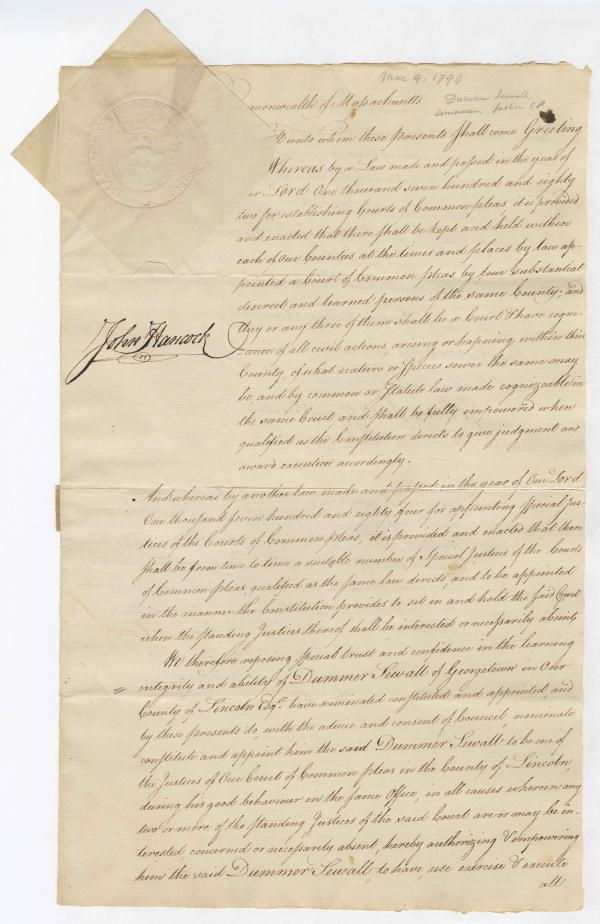 Mar 9. 1790
Dummer Sewall
Commission, Justice C P
monwealth of Massachusetts
unto whom these Presents shall come Greeting
Whereas by a Law made and passed in the year of
or Lord One thousand seven hundred and eighty
two for establishing Courts of Common pleas it is provided
and enacted that there shall be kept and held within
each of Our Counties at the times and places by law ap-
pointed a Court of Common pleas by four substantial
discreet and learned persons of the same County; and
they or any three of them shall be a Court & have cogni-
zance of all civil actions, arising or hapning within this
County, of what nature or species soever the same may
be, and by common or statute law made cognizeable in
the same Court and shall be fully impowered when
qualified as the Constitution directs to give judgment and
award execution accordingly.
John Hancock
And whereas by another law made and passed in the year of Our Lord
One thousand seven hundred and eighty four for appointing special Jus-
tices of the Courts of Common pleas, it is provided and enacted that there
shall be from time to time a suitable number of Special Justices of the Courts
of Common pleas, qualified as the same law directs, and to be appointed
in the manner the Constitution provides to sit in and hold the said Court
when the standing Justices thereof shall be interested or necessarily absent;
We therefore reposing special trust and confidence in the learning
integrity and ability of Dummer Sewall of Georgetown in Our
County of Lincoln Esqr. have nominated constituted and appointed, and
by these presents do, with the advice and consent of Council, nominate
constitute and appoint him the said Dummer Sewall to be one of
the Justices of Our Court of Common pleas in the County of Lincoln,
during his good behaviour in the same Office, in all causes wherein any
two or more of the standing Justices of the said Court are or may be in-
terested concerned or necessarily absent, hereby authorizing & empowering
him the said Dummer Sewall, to have, use exercise & execute
all